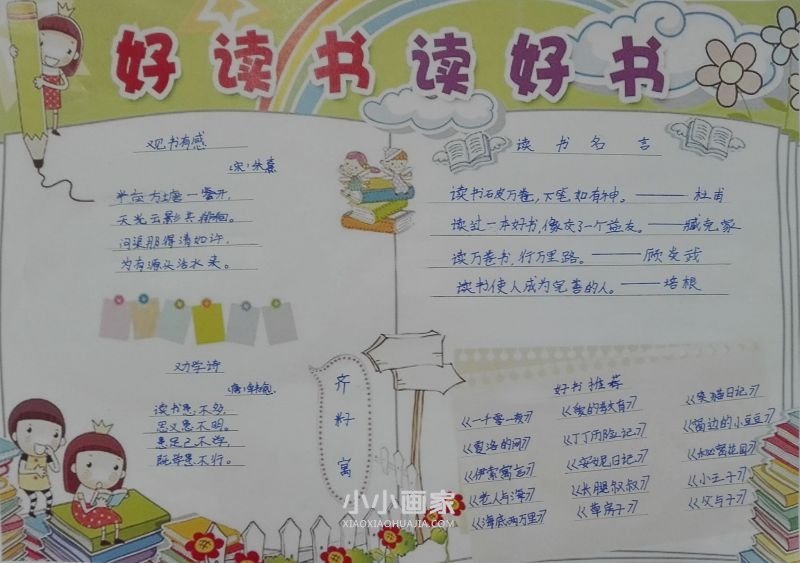 好读书读好书
观书有感
宋:朱熹
半亩方塘一鉴开,
天光云影共徘徊。
问渠那得清如许,
为有源头活水来。
劝学诗
唐:韩愈
读书患不多,
思义患不明。
患足己不学,
既学患不行。
齐籽寓
读书名言
读书破万卷,下笔如有神。——杜甫
读过一本好书,像交了一个益友。——臧克家
读万卷书,行万里路。——顾炎武
读书使人成为完善的人。——培根
好书推荐
《一千零一夜》 《爱的教育》 《笑猫日记》
《夏洛的网》 《丁丁历险记》 《窗边的小豆豆》
《伊索寓言》 《安妮日记》 《秘密花园》
《老人与海》 《长腿叔叔》 《小王子》
《海底两万里》 《草房子》 《父与子》
小小画家
XIAOXIAOHUAJIA.COM